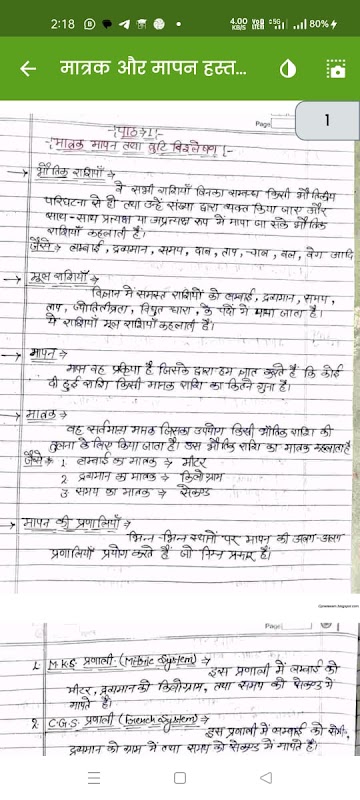 2:18
4.00 KB/S
5G
80%
मात्रक और मापन हस्त...
1
Page
-: पाठ → 1 :-
-: मात्रक मापन तथा त्रुटि विश्लेषण :-
→ भौतिक राशियाँ →
वे सभी राशियाँ जिनका सम्बन्ध किसी भौतिकीय
परिघटना से हो तथा उन्हें संख्या द्वारा व्यक्त किया जाए और
साथ-साथ प्रत्यक्ष या अप्रत्यक्ष रूप में मापा जा सके भौतिक
राशियाँ कहलाती हैं।
जैसे → लम्बाई, द्रव्यमान, समय, दाब, ताप, चाल, बल, वेग आदि
→ मूल राशियाँ →
विज्ञान में समस्त राशियों को लम्बाई, द्रव्यमान, समय,
ताप, ज्योतितीव्रता, विद्युत धारा, के पदों में मापा जाता है।
ये राशियाँ मूल राशियाँ कहलाती हैं।
→ मापन →
माप वह प्रक्रिया है जिसके द्वारा हम ज्ञात करते हैं कि कोई
दी हुई राशि किसी मानक राशि का कितने गुना है।
→ मात्रक →
वह सर्वमान्य मानक जिसका उपयोग किसी भौतिक राशि की
तुलना के लिए किया जाता है। उस भौतिक राशि का मात्रक कहलाता है
जैसे → 1 लम्बाई का मात्रक → मीटर
2 द्रव्यमान का मात्रक → किलोग्राम
3 समय का मात्रक → सेकण्ड
→ मापन की प्रणालियाँ →
भिन्न-भिन्न स्थानों पर मापन की अलग-अलग
प्रणालियाँ प्रयोग करते हैं जो निम्न प्रकार हैं।
Page
1. M.K.S. प्रणाली - (Metric System) →
इस प्रणाली में लम्बाई को
मीटर, द्रव्यमान को किलोग्राम, तथा समय को सेकण्ड में
मापते हैं।
2. C.G.S. प्रणाली (French System) →
इस प्रणाली में लम्बाई को सेमी,
द्रव्यमान को ग्राम में तथा समय को सेकण्ड में मापते हैं।